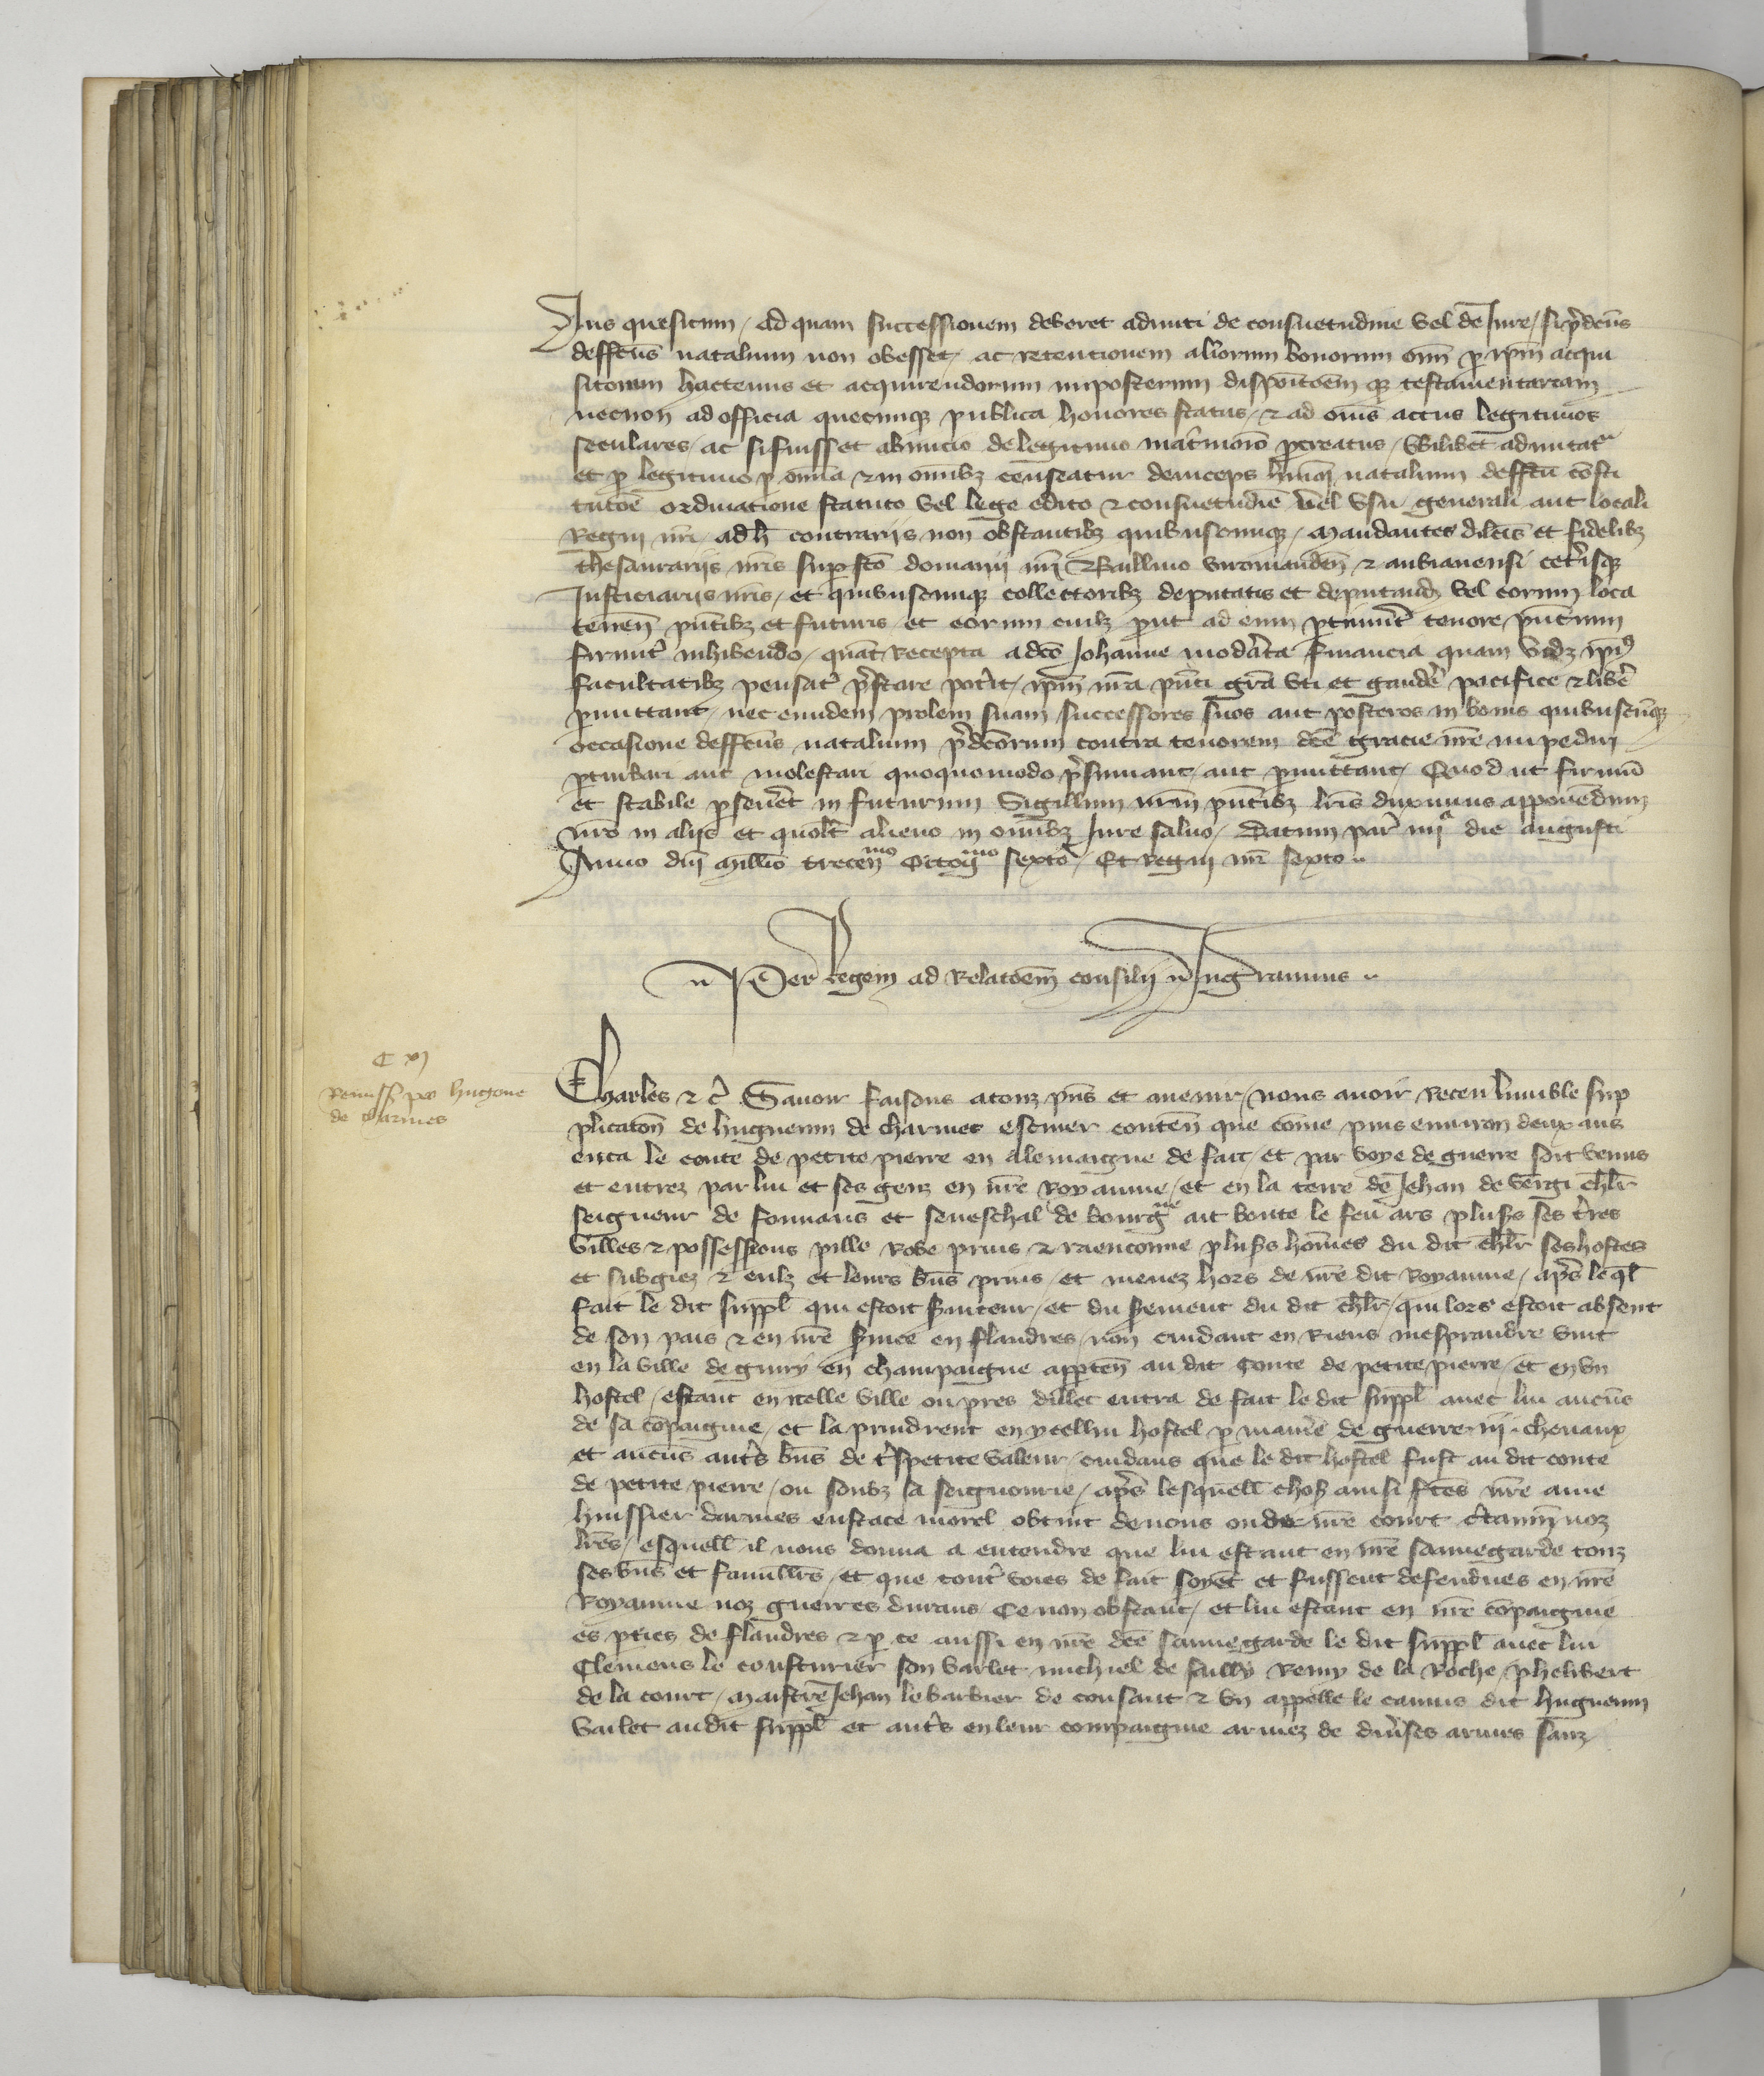 Jus quesitum / ad quam successionem deberet admitti de consuetudine vel de Jure / si p̄dc̄us
deffc̄us natalium non obesset / ac retentionem aliorum bonorum om̄i p ip̄m acqui
sitorum hactenus et acquirendorum imposterum disposic̄oēm q testamentariam
necnon ad officia quecumq publica honores status / & ad om̄s actus legitimos
seculares / ac si fuisset ab inicio de legitimo mat̄rimōio pcreatus / vbilibet admittat
et p legitimo p om̄ia & in om̄ibz censeatur deinceps hmōi natalium deffc̄u cōsti
tuc̄oe ordinatione statuto vel lege edito & consuetudīe vel vsu generali aut locali
Regni nr̄i ad h̄ contrarijs non obstantibz quibuscumq / Mandantes dilc̄is et fidelibz
thesaurarijs nr̄is sup fc̄o domanij nr̄i & Baillivo viromanden̄ & ambianensi cet̄isq
Justiciarijs nr̄is / et quibuscumq collectoribz deputatis et deputandz vel eorum loca
tenen̄ pn̄tibz et futuris et eorum cuilz put ad eum ptinuīt tenore pn̄tium
firmit̄ inhibendo / quat̄ Recepta a dc̄o Johanne mod̄ata financia quam
facultatibz pensat̄ p̄stare pot̄it / ip̄m nr̄a pn̄ti gr̄a vti et gaudē pacifice & lib̄e
pmittant / nec eundem prolem suam successores suos aut posteros in bonis quibuscūq
occasione deffc̄us natalium p̄dc̄orum contra tenorem dc̄e gracie nr̄e impediri
pturbari aut molestari quoquomodo p̄sumant / aut pmittant / Quod ut firmū
et stabile pseveret in futurum Sigillum nr̄m pn̄tibz lr̄is duximus apponēdum
nr̄o in alijs et quolt̄ alieno in om̄ibz Jure salvo / Datum par̄ iiij^a die augusti
Anno dn̄i millio trecen^mo Octog^mo sexto / Et Regni nr̄i sexto
Per Regem ad Relac̄oem consilij Ingramus
C xj
Remiss pro hugone
de charmes
Charles & c̄ Savoir faisons a touz pn̄s et avenir / nous avoir receu lumble sup
plicatōn de huguenin de charmes escuier conten̄ que cōme puis environ deux ans
enca le conte de petite pierre en alemaigne de fait / et par voye de guerre soit venus
et entrez par lui et ses genz en nr̄e Royaume / et en la terre de Jehan de vergi chlr̄
seigneur de fonvans et seneschal de bourg^ne ait boute le feu ars pluss ses t̄res
villes & possessions pille robe prins & raenconne pluss hom̄es du dit chlr̄ ses hostes
et subgiez & eulz et leurs bn̄s prins / et menez hors de nr̄e dit Royaume / ap̄s leql̄
fait le dit suppl̄ qui estoit s̄viteur / et du s̄rement du dit chlr̄ / qui lors estoit absent
de son pais & en nr̄e s̄vice en flandres / non cuidant en Riens mesprandre vint
en la ville de en champaigne apparten̄ au dit Conte de petite pierre / et en vn
hostel / estant en icelle ville ou pres dillec entra de fait le dit suppl̄ avec lui aucūs
de sa cōpaignie / et la prindrent en ycellui hostel p manīe de guerre iij chevaux
et aucūs autr̄s bn̄s de tr̄s petite valeur / cuidans que le dit hostel fust au dit conte
de petite pierre / ou soubz sa seigneurie / ap̄s lesquell̄ chos̄ ainsi fc̄es nr̄e ame
huissier darmes eustace morel obtint de nous ou de nr̄e court c̄tain̄ noz
lr̄es / esquell̄ il nous donna a entendre que lui estant en nr̄e sauvegarde touz
ses bn̄s et famill̄rs / et que tout̄ voies de fait soyēt et fussent defendues en nr̄e
Royaume noz guerres durans / Ce non obstant / et lui estant en nr̄e cōpaignie
es pties de flandres & p ce aussi en nr̄e dc̄e sauvegarde le dit suppl̄ avec lui
Clemens le cousturier son varlet michiel de sully Remy de la Roche / phelibert
de la court / Maistre Jehan le barbier de consant & vn appelle le camus dit huguenin
vallet au dit suppl̄ et autr̄s en leur compaignie armez de div̄ses armes sanz